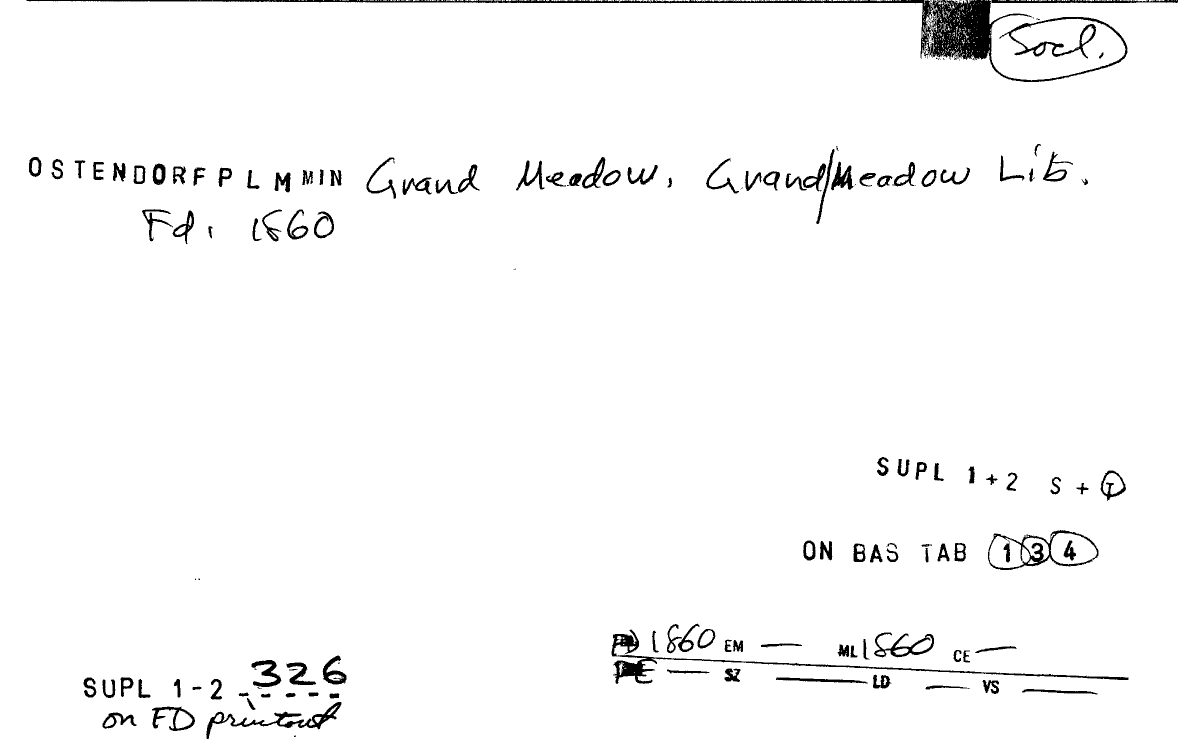 Socl.
OSTENDORF P L M MIN Grand Meadow, Grand/Meadow Lib.
Fd. 1860
SUPL 1+2 S + T
ON BAS TAB 1 3 4
FD 1860 EM — ML 1860 CE —
PE — SZ — LD — VS —
SUPL 1-2 326
on FD printout